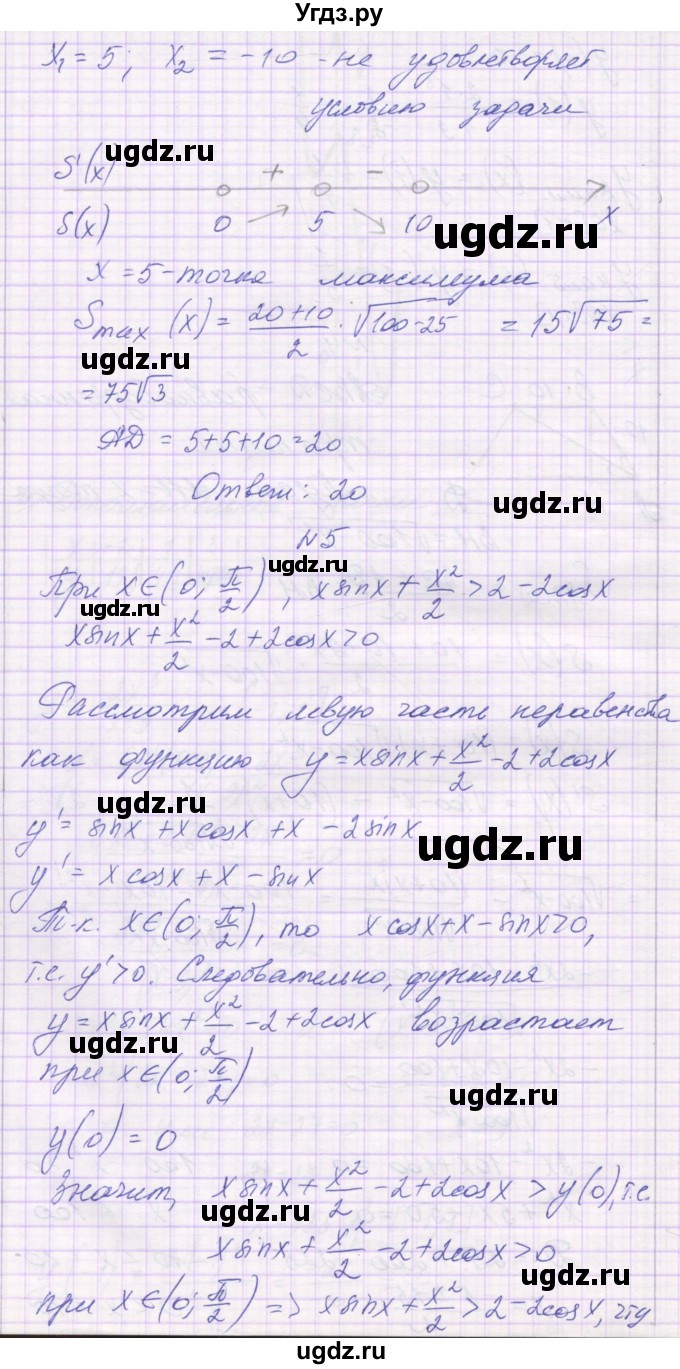 Угдз.ру
x₁ = 5; x₂ = -10 - не удовлетворяет
условию задачи
ugdz.ru
S'(x) + -
S(x) 0 5 10 x
ugdz.ru
x = 5 - точка максимума
S max (x) = (20+10)/2 · √(100-25) = 15√75 =
ugdz.ru
= 75√3
AD = 5+5+10 = 20
Ответ: 20
ugdz.ru
№5
При x∈(0; π/2), x sinx + x²/2 > 2 - 2cosx
ugdz.ru
x sinx + x²/2 - 2 + 2cosx > 0
Рассмотрим левую часть неравенства
как функцию y = x sinx + x²/2 - 2 + 2cosx
ugdz.ru
y' = sinx + x cosx + x - 2 sinx
ugdz.ru
y' = x cosx + x - sinx
Т.к. x∈(0; π/2), то x cosx + x - sinx > 0,
т.е. y' > 0. Следовательно, функция
y = x sinx + x²/2 - 2 + 2cosx возрастает
ugdz.ru
при x∈(0; π/2)
ugdz.ru
y(0) = 0
Значит, x sinx + x²/2 - 2 + 2cosx > y(0), т.е.
ugdz.ru
x sinx + x²/2 - 2 + 2cosx > 0
ugdz.ru
при x∈(0; π/2) => x sinx + x²/2 > 2 - 2cosx, чтд
ugdz.ru
ugdz.ru